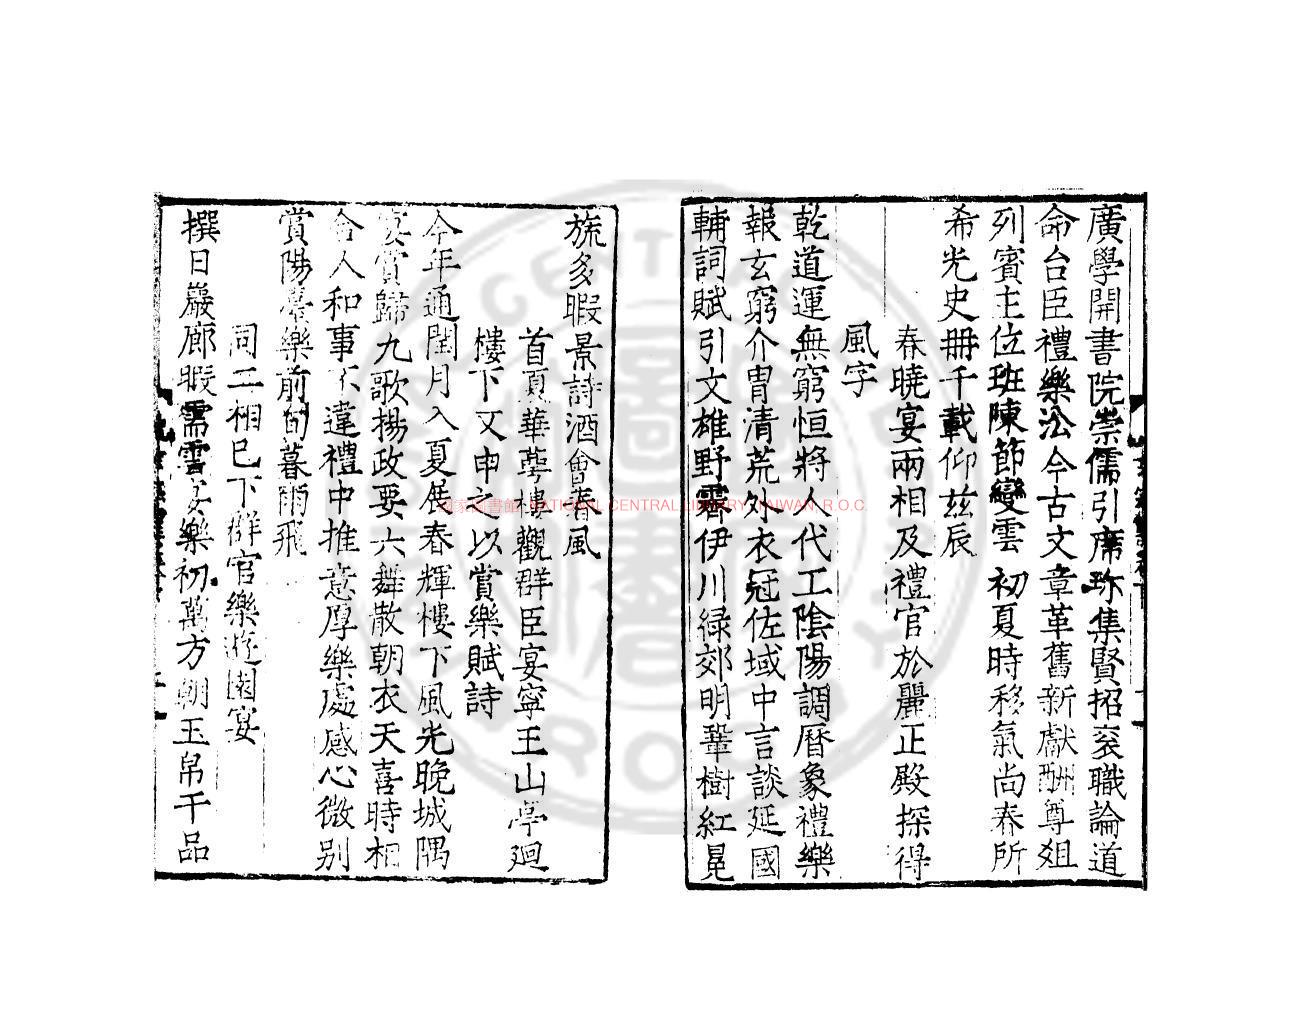 廣學開書院崇儒引席珍集賢招袞職論道
命台臣禮樂㳂今古文章革舊新獻酬尊俎
列賓主位班陳節變雲初夏時移氣尚春所
希光史冊千載仰茲辰
春曉宴兩相及禮官於麗正殿探得
風字
乾道運無窮恒將人代工陰陽調曆象禮樂
報玄窮介冑清荒外衣冠佐域中言談延國
輔詞賦引文雄野霽伊川綠郊明鞏樹紅冕
旒多暇景詩酒會春風
首夏華萼樓觀群臣宴寧王山亭廻
樓下又申之以賞樂賦詩
今年通閏月入夏展春輝樓下風光晚城隅
宴賞歸九歌揚政要六舞散朝衣天喜時相
合人和事不違禮中推意厚樂處感心微別
賞陽臺樂前旬暮雨飛
同二相已下群官樂遊園宴
撰日巖廊暇需雲宴樂初萬方朝玉帛千品
國家圖書館 NATIONAL CENTRAL LIBRARY, TAIWAN R.O.C.